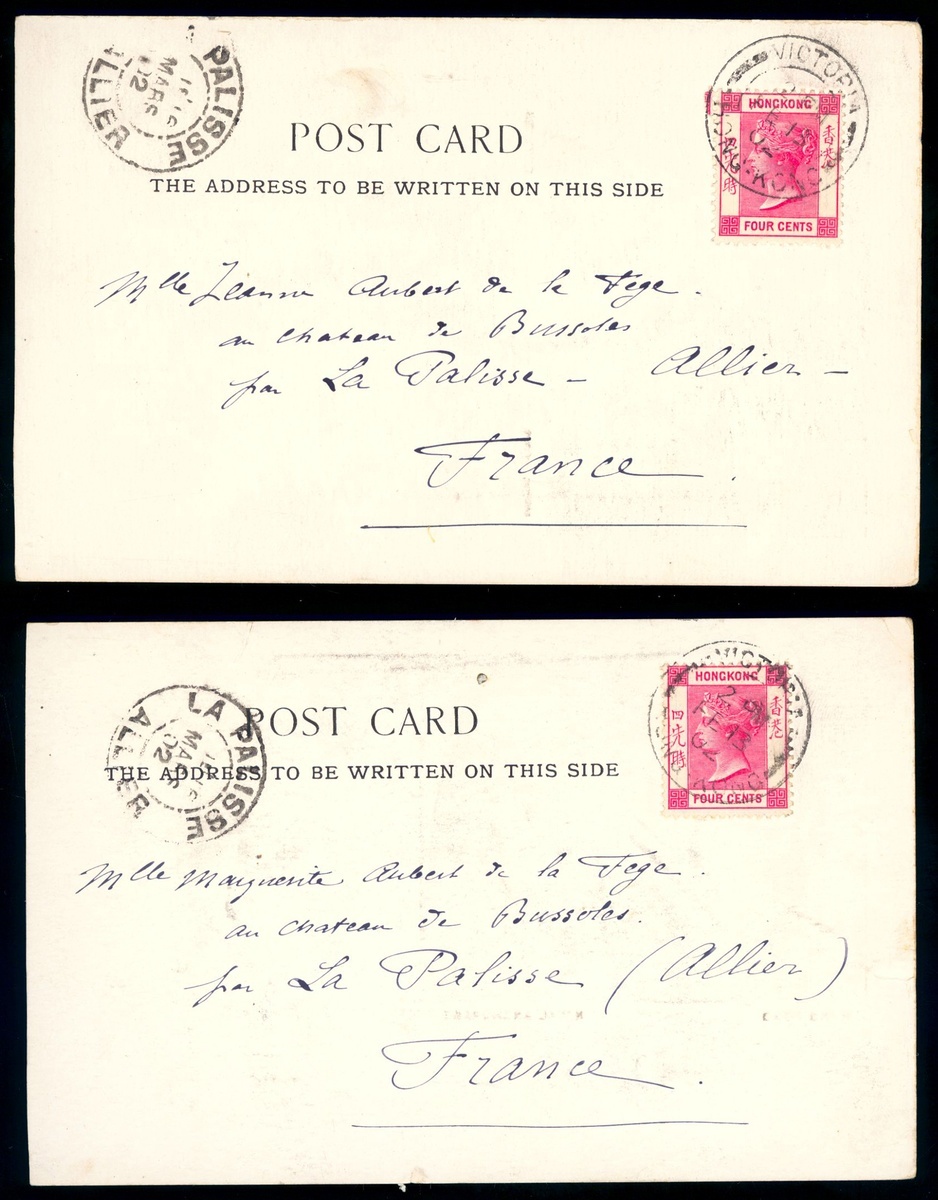 PALISSE
ALLIER
MARS
02
VICTORIA
HONG-KONG
HONGKONG
香港
時
FOUR CENTS
POST CARD
THE ADDRESS TO BE WRITTEN ON THIS SIDE
Mlle Jeanne Aubert de la Fege.
au chateau de Bussoles
par La Palisse - Allier -
France.
LA PALISSE
ALLIER
15
MARS
02
HONGKONG
香港
四先時
FOUR CENTS
FE 13
02
POST CARD
THE ADDRESS TO BE WRITTEN ON THIS SIDE
Mlle Marguerite Aubert de la Fege.
au chateau de Bussoles.
par La Palisse (Allier)
France.